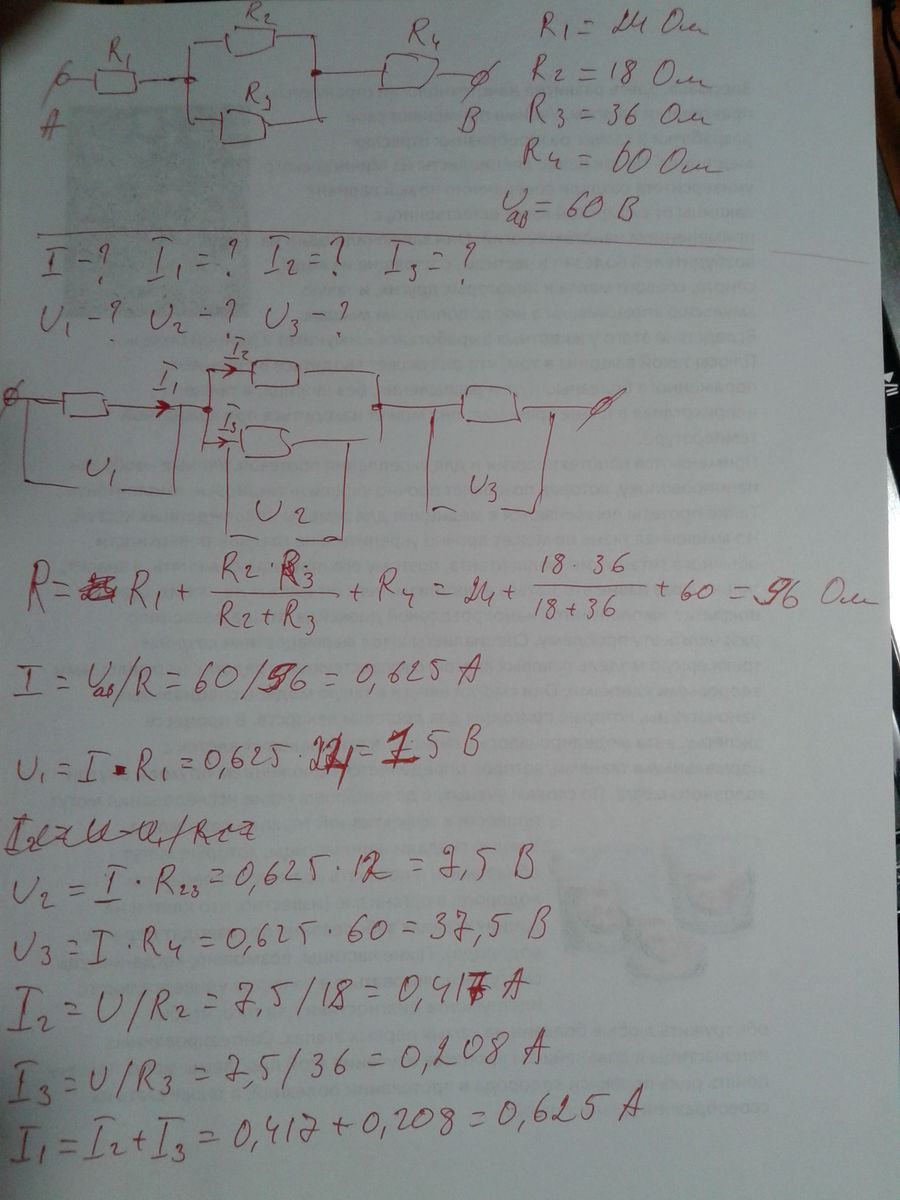 R₁ R₂ R₃ R₄ A B
R₁ = 24 Ом
R₂ = 18 Ом
R₃ = 36 Ом
R₄ = 60 Ом
Uав = 60 В
I - ? I₁ = ? I₂ = ? I₃ = ?
U₁ - ? U₂ - ? U₃ - ?
I₁ I₂ I₃
U₁ U₂ U₃
R = R₁ + (R₂ · R₃)/(R₂ + R₃) + R₄ = 24 + (18 · 36)/(18 + 36) + 60 = 96 Ом
I = Uав/R = 60/96 = 0,625 А
U₁ = I · R₁ = 0,625 · 24 = 15 В
U₂ = I · R₂₃ = 0,625 · 12 = 7,5 В
U₃ = I · R₄ = 0,625 · 60 = 37,5 В
I₂ = U/R₂ = 7,5/18 = 0,417 А
I₃ = U/R₃ = 7,5/36 = 0,208 А
I₁ = I₂ + I₃ = 0,417 + 0,208 = 0,625 А